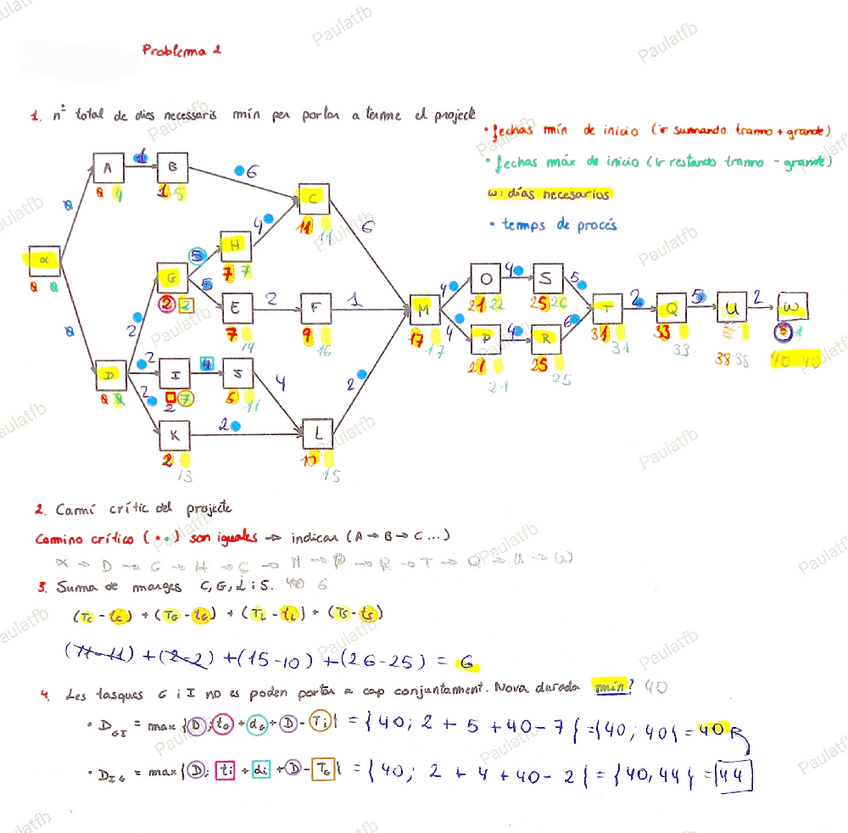 Problema 2
1. nº total de dies necessaris mín per portar a terme el projecte
• fechas mín de inicio (ir sumando tramo + grande)
• fechas máx de inicio (ir restando tramo - grande)
ω: días necesarios
• temps de procés
A 1 B 6
0 4 1 5
0 C
4 11 11 6
α 5 H
0 0 G 7 7 4 O 4 S 5
2 2 5 E 2 F 1 M 21 22 25 26 T 2 Q 5 U 2 ω
0 2 7 14 9 16 17 17 4 P 4 R 6 31 31 33 33 38 38 40 40
D 2 I 4 S 4 2 21 21 25 25
0 0 2 2 7 6 11
K 2 L
2 13 10 15
2. Camí crític del projecte
Camino crítico (••) son iguales → indicar (A → B → C ...)
α → D → G → H → C → M → P → R → T → Q → U → ω
3. Suma de marges C, G, L i S. 6
(Tc - tc) + (TG - tG) + (TL - tL) + (Ts - ts)
(11-11) + (2-2) + (15-10) + (26-25) = 6
4. Les tasques G i I no es poden portar a cap conjuntament. Nova durada mín? 40
• DGI = max {D; tG + dG + D - Ti} = {40; 2 + 5 + 40 - 7} = {40; 40} = 40
• DIG = max {D; ti + di + D - TG} = {40; 2 + 4 + 40 - 2} = {40, 44} = 44
Paulatfb